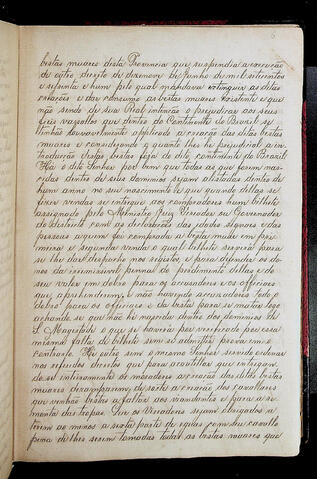 bestas muares desta Provincia que suspendia a execução
de outro direito de dezenove de Junho de mil setecentos
e sessenta e hum pelo qual mandava extinguir as ditas
creações e dar consumo as bestas muares existente e que
não sendo de sua Real intenção o prejudicar aos seus
fieis vassallos que dentro do Continente do Brazil se
tinhão louvavelmente applicado a creação das ditas bestas
muares e considerando o quanto lhes he prejudicial a in-
trodução destas bestas fora do dito continente do Brazil
Ha o dito Senhor por bem que todas as que forem nas-
cidas dentro de seus dominios sejam alistadas dentro de
hum anno no seu nascimento e que quando dellas se
fizer vendas se entregue aos compradores hum bilhete
assignado pelo Ministro Juiz Vereador ou Governador
do destricto com as declarações das idades signaes e das
pessoas aquem for comprado a besta muar em pri-
meira e segunda venda o qual bilhete servirá para
se lhe dar despacho nos registos, e para defender os do-
nos da irremissivel penna do perdimento dellas e do
seu valor em dobro para os accusadores e os officiaes
que aprehenderem, e não havendo accusadores todo o
dobro para os officiaes e da besta para se matar logo
achando se que não he nascida dentro dos dominios de
S. Magestade o que se haverá por verificado por essa
mesma falta de bilhete sem se admittir prova em o
contrario. Ha outro sim o mesmo Senhor servido ordenar
nos referidos direitos que para cavallos que entregan-
do se inteiramente os moradores a creação das ditas bestas
muares desamparem de sorte a creação dos cavallares
que venhão estes a faltar aos viandantes e para a re-
monta das tropas. Que os Creadores sejam obrigados a
terem ao menos a sexta parte de egoas com seu cavallo
pena de lhes serem tomadas todas as bestas muares que